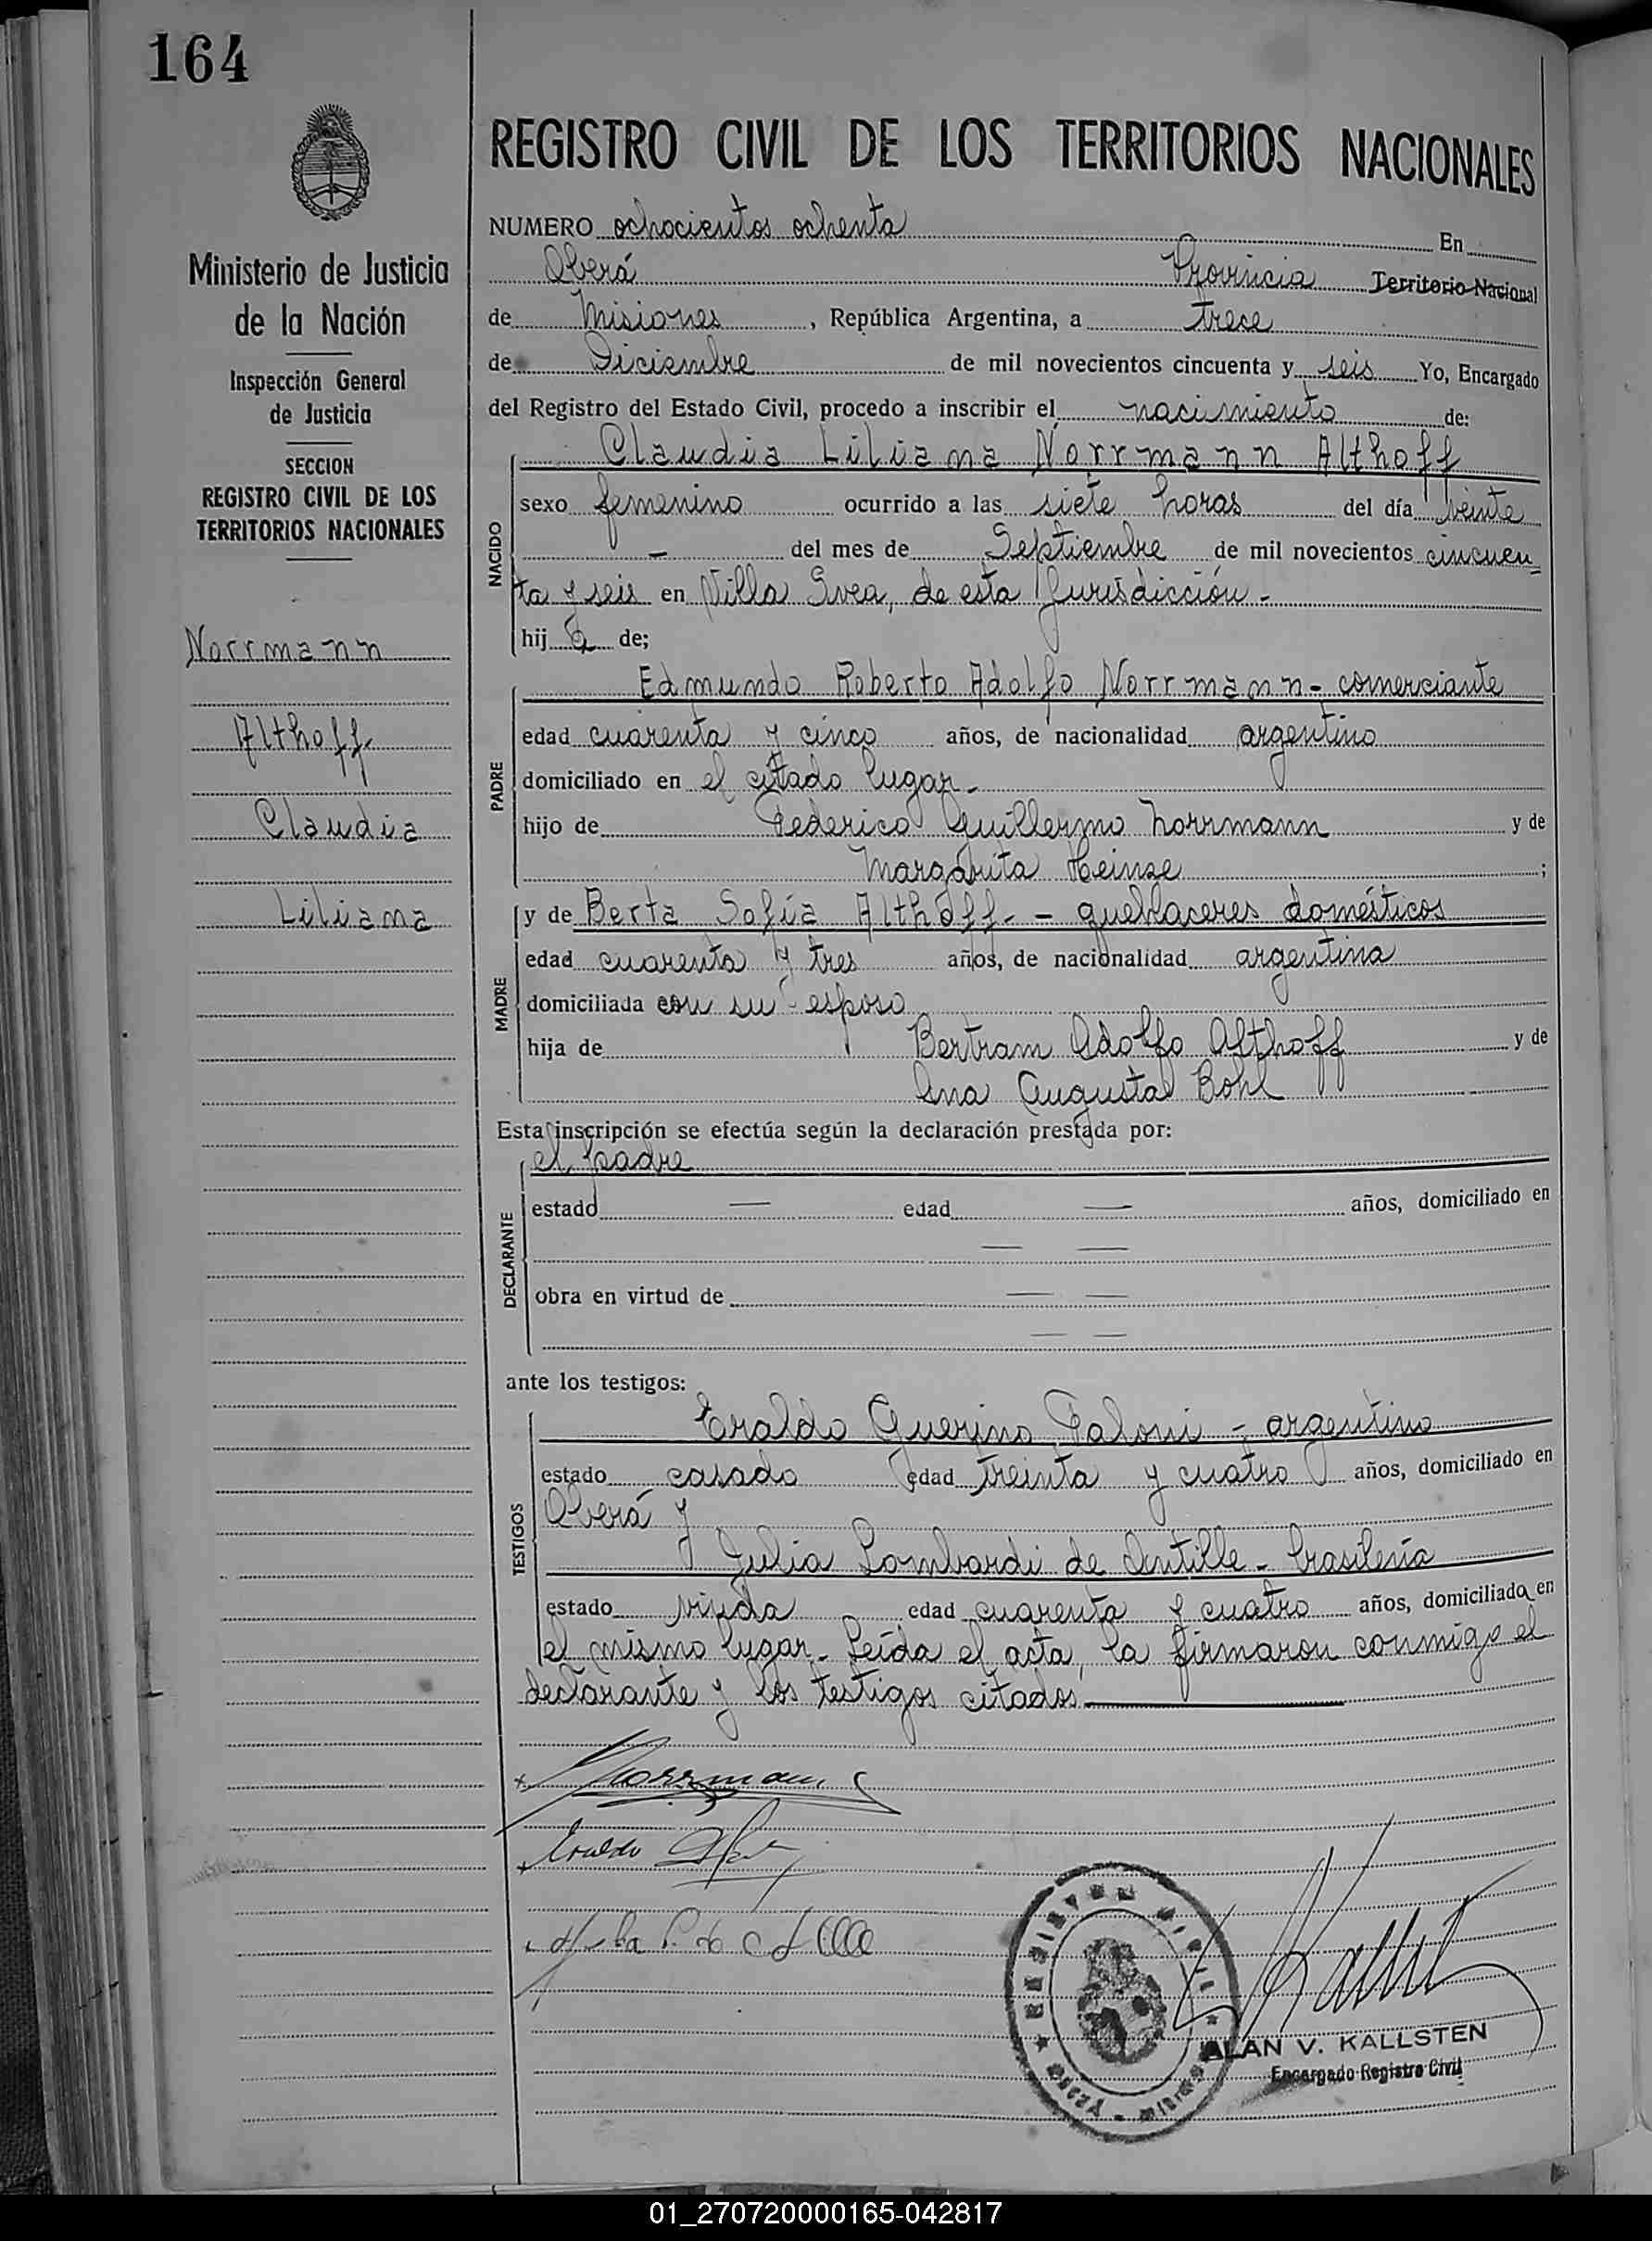 164
REGISTRO CIVIL DE LOS TERRITORIOS NACIONALES
Ministerio de Justicia
de la Nación
Inspección General
de Justicia
SECCION
REGISTRO CIVIL DE LOS
TERRITORIOS NACIONALES
Norrmann
Althoff.
Claudia
Liliana
NUMERO ochocientos ochenta En
Oberá Provincia Territorio Nacional
de Misiones, República Argentina, a trece
de Diciembre de mil novecientos cincuenta y seis Yo, Encargado
del Registro del Estado Civil, procedo a inscribir el nacimiento de:
NACIDO
Claudia Liliana Norrmann Althoff
sexo femenino ocurrido a las siete horas del día veinte
— del mes de Septiembre de mil novecientos cincuen
ta y seis en Villa Svea, de esta Jurisdicción -
hij a de;
PADRE
Edmundo Roberto Adolfo Norrmann - comerciante
edad cuarenta y cinco años, de nacionalidad argentino
domiciliado en el citado lugar.
hijo de Federico Guillermo Norrmann y de
Margarita Heinze ;
MADRE
y de Berta Sofía Althoff. - quehaceres domésticos
edad cuarenta y tres años, de nacionalidad argentina
domiciliada con su esposo
hija de Bertram Adolfo Althoff y de
Ana Augusta Bohl
Esta inscripción se efectúa según la declaración prestada por:
DECLARANTE
el padre
estado — edad — años, domiciliado en
— —
obra en virtud de — —
— —
ante los testigos:
TESTIGOS
Eraldo Querino Faloni - argentino
estado casado edad treinta y cuatro años, domiciliado en
Oberá y
Julia Lombardi de Antille - brasileña
estado viuda edad cuarenta y cuatro años, domiciliada en
el mismo lugar. Leída el acta, la firmaron conmigo el
declarante y los testigos citados.
Norrmann
Eraldo
REGISTRO CIVIL
OBERÁ - MISIONES
ALAN V. KALLSTEN
Encargado Registro Civil
01_270720000165-042817